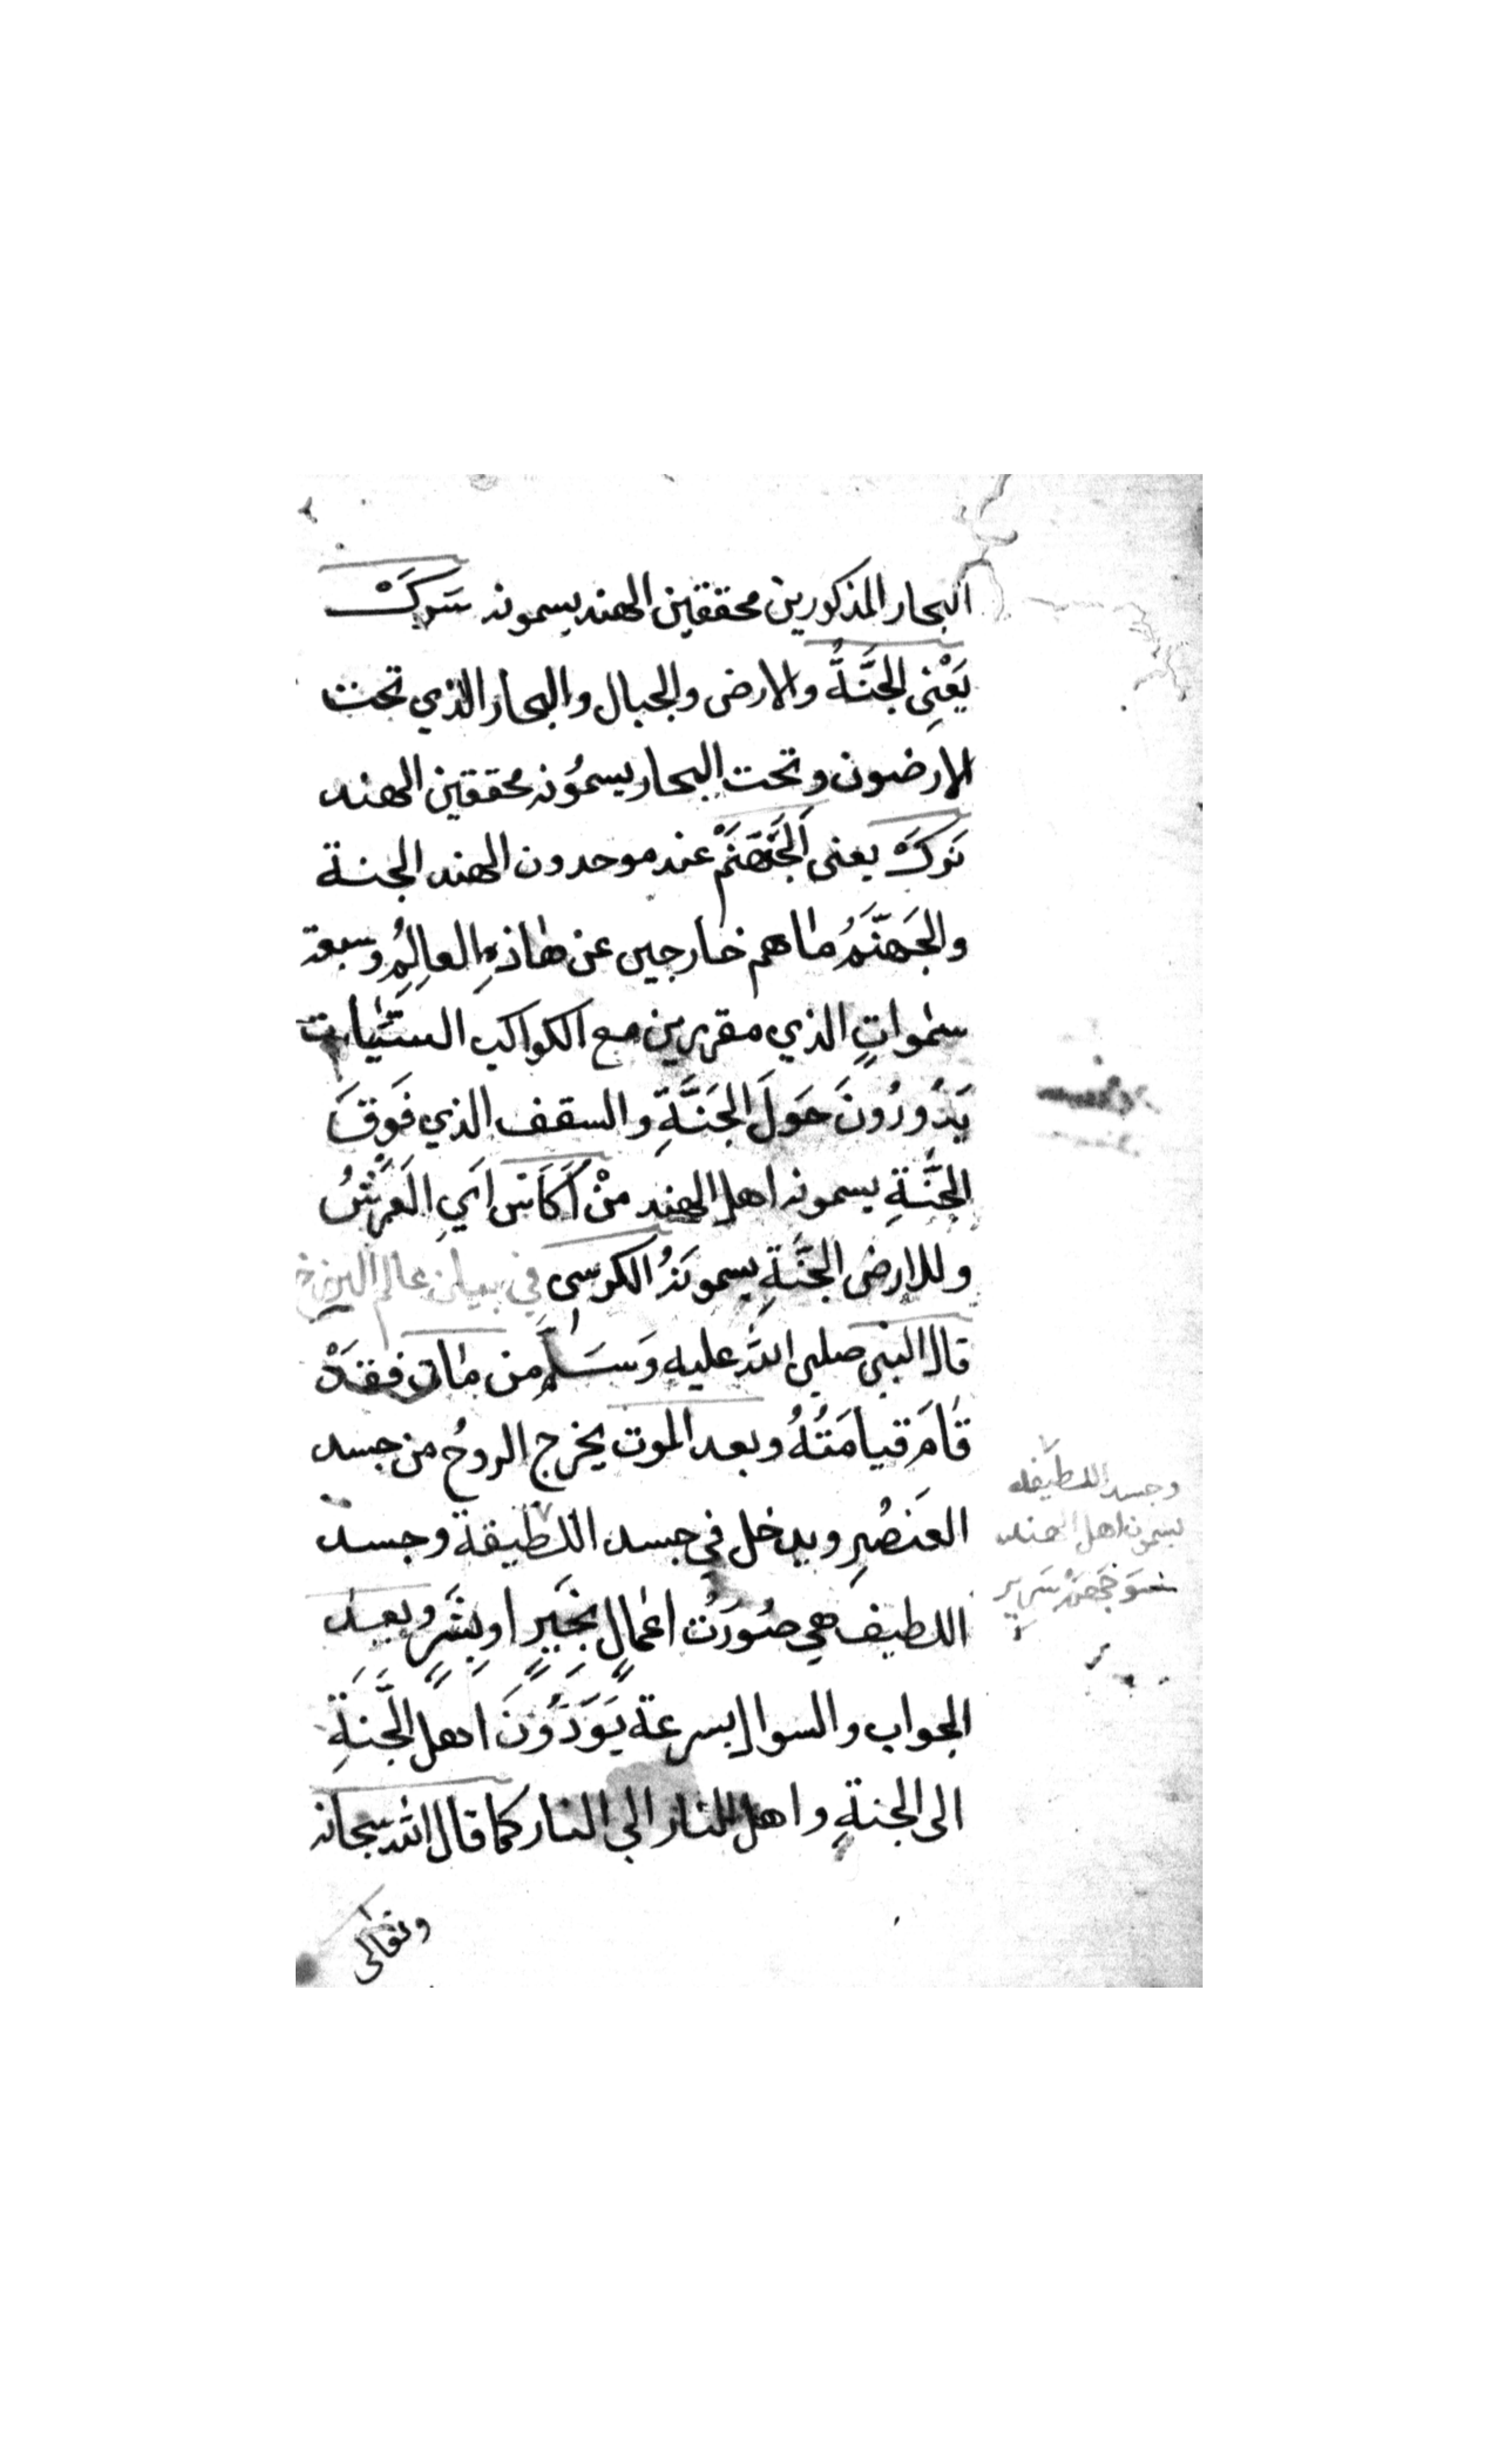 البحار المذكورين محققين الهند يسمونه سَرَكَ
يَعْنِي الجَنَّةُ والارض والجبال والبحار الذي تحت
الارضون وتحت البحار يسمُونه محققين الهند
نَرَكَ يعنى الجَهَنَمْ عند موحدون الهند الجنة
والجَهَنَّمُ ماهم خارجين عن هاذهِ العالِمُ وسبعة
سموٰاتٍ الذي مقررين مع الكواكب السَّيَّارات
يَدُورُونَ حَولَ الجَنَّةِ والسقف الذي فَوقَ
الجَّنَةِ يسمونه اهل الهند مَنْ اَكَاسْ اَيِ العَرَشُ
وللارض الجَّنَةِ يسمونَهُ الكرسي في بيان عالم البرزخ
قال النبى صلى الله عليه وَسَلَّم من مات فقدْ
قَامَ قيامَتُهُ وبعد الموت يخرج الروحُ من جسد
العَنصُرِ ويدخل في جسد اللطيفة وجسد
اللطيف هي صُورَتُ اعمالٍ بخَيرٍ او بِشَرٍ وبعد
الجواب والسوال بسرعة يَوَدُّونَ اهل الجَّنةِ
الى الجنةِ واهل النار الى النار كما قال الله سبحانه
وتعالى
وجسد اللطيفه
يسمونه اهل الهند